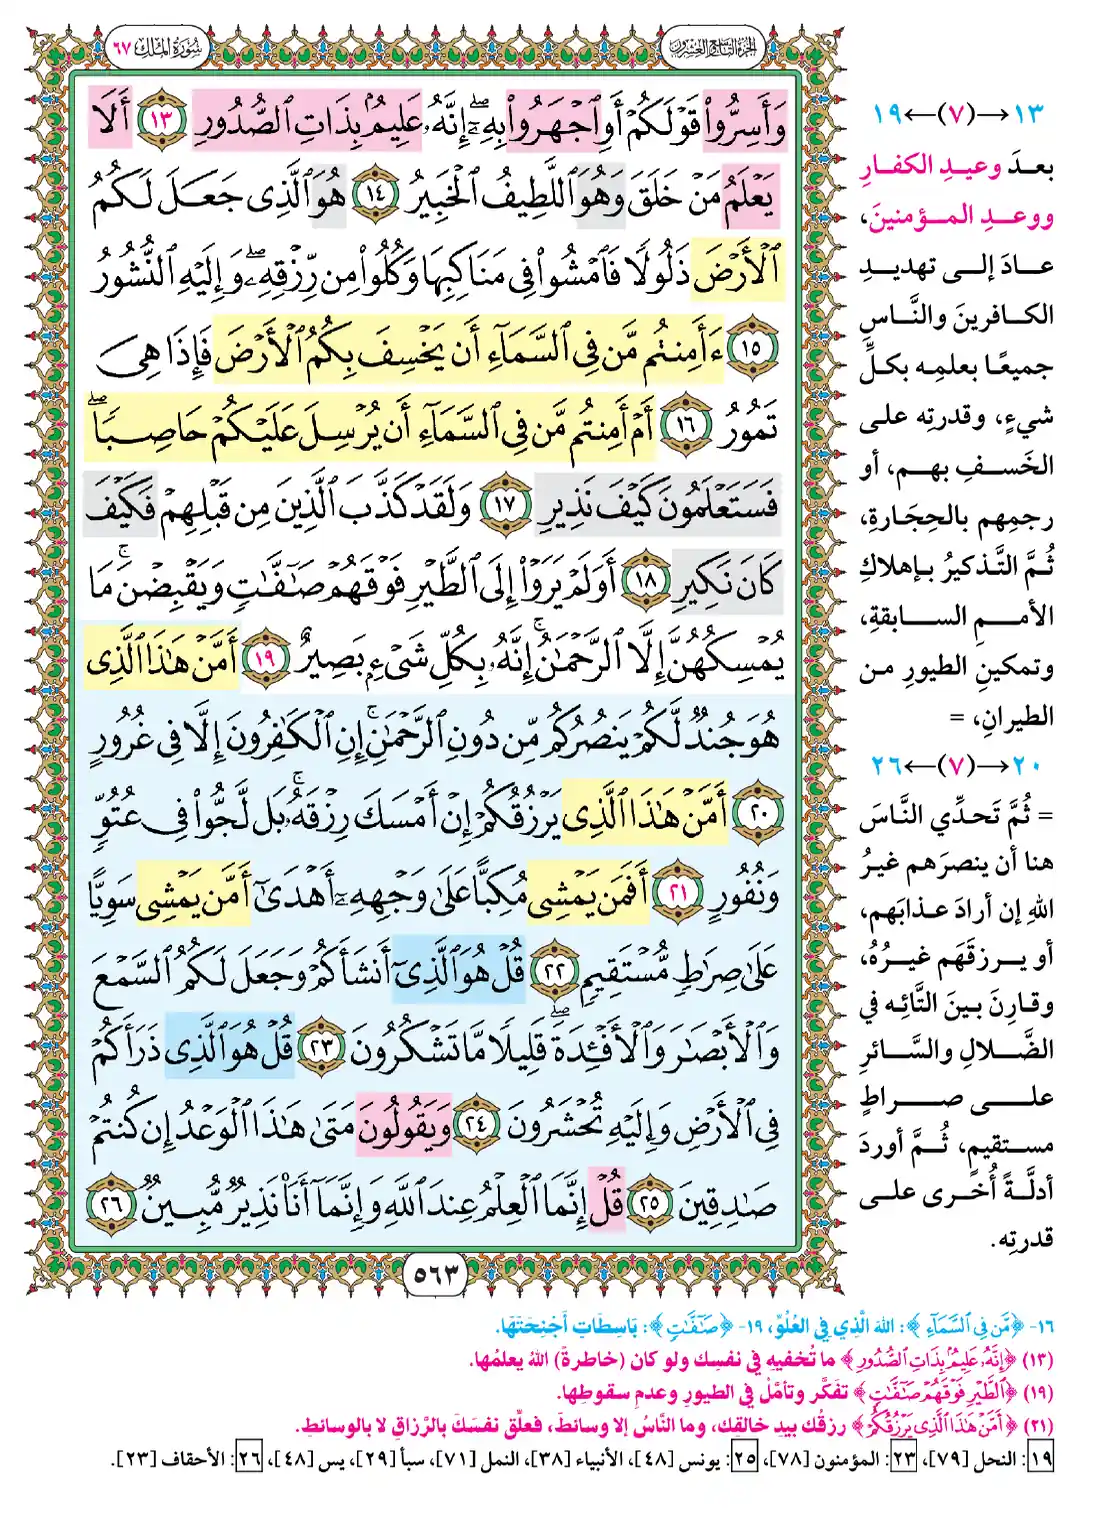 الجزء التاسع والعشرون
سورة الملك ٦٧
وَأَسِرُّوا۟ قَوْلَكُمْ أَوِ ٱجْهَرُوا۟ بِهِۦٓ ۖ إِنَّهُۥ عَلِيمٌۢ بِذَاتِ ٱلصُّدُورِ ١٣ أَلَا
يَعْلَمُ مَنْ خَلَقَ وَهُوَ ٱللَّطِيفُ ٱلْخَبِيرُ ١٤ هُوَ ٱلَّذِى جَعَلَ لَكُمُ
ٱلْأَرْضَ ذَلُولًا فَٱمْشُوا۟ فِى مَنَاكِبِهَا وَكُلُوا۟ مِن رِّزْقِهِۦ ۖ وَإِلَيْهِ ٱلنُّشُورُ
١٥ ءَأَمِنتُم مَّن فِى ٱلسَّمَآءِ أَن يَخْسِفَ بِكُمُ ٱلْأَرْضَ فَإِذَا هِىَ
تَمُورُ ١٦ أَمْ أَمِنتُم مَّن فِى ٱلسَّمَآءِ أَن يُرْسِلَ عَلَيْكُمْ حَاصِبًا ۖ
فَسَتَعْلَمُونَ كَيْفَ نَذِيرِ ١٧ وَلَقَدْ كَذَّبَ ٱلَّذِينَ مِن قَبْلِهِمْ فَكَيْفَ
كَانَ نَكِيرِ ١٨ أَوَلَمْ يَرَوْا۟ إِلَى ٱلطَّيْرِ فَوْقَهُمْ صَٰٓفَّٰتٍ وَيَقْبِضْنَ ۚ مَا
يُمْسِكُهُنَّ إِلَّا ٱلرَّحْمَٰنُ ۚ إِنَّهُۥ بِكُلِّ شَىْءٍۭ بَصِيرٌ ١٩ أَمَّنْ هَٰذَا ٱلَّذِى
هُوَ جُندٌ لَّكُمْ يَنصُرُكُم مِّن دُونِ ٱلرَّحْمَٰنِ ۚ إِنِ ٱلْكَٰفِرُونَ إِلَّا فِى غُرُورٍ
٢٠ أَمَّنْ هَٰذَا ٱلَّذِى يَرْزُقُكُمْ إِنْ أَمْسَكَ رِزْقَهُۥ ۚ بَل لَّجُّوا۟ فِى عُتُوٍّ
وَنُفُورٍ ٢١ أَفَمَن يَمْشِى مُكِبًّا عَلَىٰ وَجْهِهِۦٓ أَهْدَىٰٓ أَمَّن يَمْشِى سَوِيًّا
عَلَىٰ صِرَٰطٍ مُّسْتَقِيمٍ ٢٢ قُلْ هُوَ ٱلَّذِىٓ أَنشَأَكُمْ وَجَعَلَ لَكُمُ ٱلسَّمْعَ
وَٱلْأَبْصَٰرَ وَٱلْأَفْـِٔدَةَ ۖ قَلِيلًا مَّا تَشْكُرُونَ ٢٣ قُلْ هُوَ ٱلَّذِى ذَرَأَكُمْ
فِى ٱلْأَرْضِ وَإِلَيْهِ تُحْشَرُونَ ٢٤ وَيَقُولُونَ مَتَىٰ هَٰذَا ٱلْوَعْدُ إِن كُنتُمْ
صَٰدِقِينَ ٢٥ قُلْ إِنَّمَا ٱلْعِلْمُ عِندَ ٱللَّهِ وَإِنَّمَآ أَنَا۠ نَذِيرٌ مُّبِينٌ ٢٦
٥٦٣
١٣→(٧)←١٩
بعدَ وعيدِ الكفارِ
ووعدِ المؤمنينَ،
عادَ إلى تهديدِ
الكافرينَ والنَّاسِ
جميعًا بعلمِه بكلِّ
شيءٍ، وقدرتِه على
الخَسفِ بهم، أو
رجمِهم بالحِجَارةِ،
ثُمَّ التَّذكيرُ بإهلاكِ
الأممِ السابقةِ،
وتمكينِ الطيورِ من
الطيرانِ، =
٢٠→(٧)←٢٦
= ثُمَّ تَحدِّي النَّاسَ
هنا أن ينصرَهم غيرُ
اللهِ إن أرادَ عذابَهم،
أو يرزقَهم غيرُهُ،
وقارنَ بينَ التَّائِه في
الضَّلالِ والسَّائرِ
على صراطٍ
مستقيمٍ، ثُمَّ أوردَ
أدلَّةً أُخرى على
قدرتِه.
١٦- ﴿مَّن فِي ٱلسَّمَآءِ﴾: اللهَ الَّذِي فِي العُلُوِّ، ١٩- ﴿صَٰٓفَّٰتٍ﴾: بَاسِطَاتٍ أَجْنِحَتَهَا.
(١٣) ﴿إِنَّهُۥ عَلِيمٌۢ بِذَاتِ ٱلصُّدُورِ﴾ ما تُخفيهِ في نفسِك ولو كان (خاطرةً) اللهُ يعلمُها.
(١٩) ﴿ٱلطَّيْرِ فَوْقَهُمْ صَٰٓفَّٰتٍ﴾ تفكَّر وتأمَّلْ في الطيورِ وعدمِ سقوطِها.
(٢١) ﴿أَمَّنْ هَٰذَا ٱلَّذِى يَرْزُقُكُمْ﴾ رزقُك بيدِ خالقِك، وما النَّاسُ إلا وسائطَ، فعلِّق نفسَكَ بالرَّزاقِ لا بالوسائطِ.
١٩: النحل [٧٩]، ٢٣: المؤمنون [٧٨]، ٢٥: يونس [٤٨]، الأنبياء [٣٨]، النمل [٧١]، سبأ [٢٩]، يس [٤٨]، ٢٦: الأحقاف [٢٣].